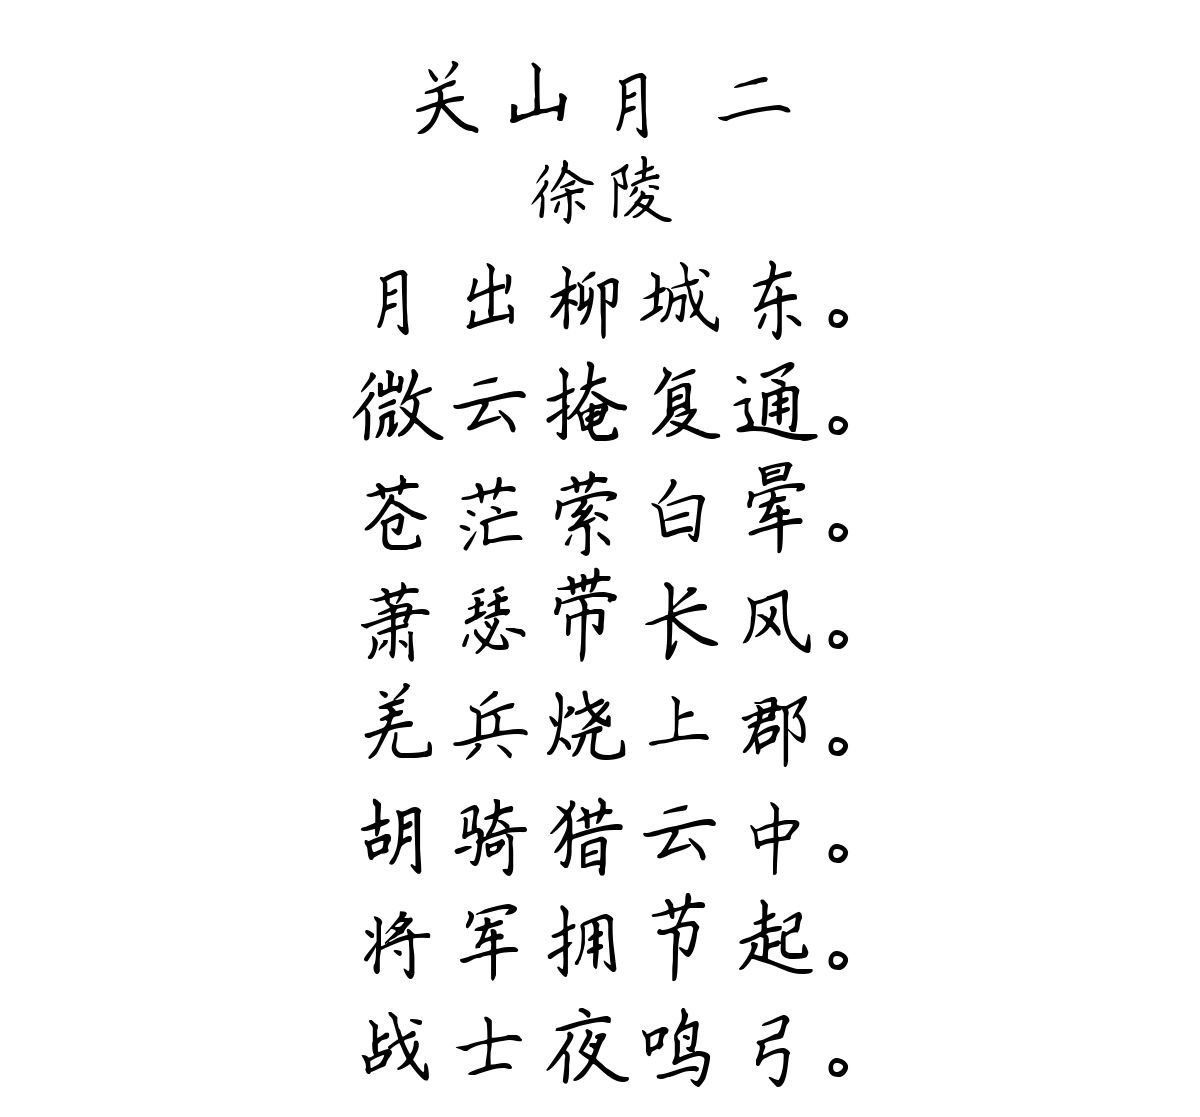 关山月 二
徐陵
月出柳城东。
微云掩复通。
苍茫萦白晕。
萧瑟带长风。
羌兵烧上郡。
胡骑猎云中。
将军拥节起。
战士夜鸣弓。